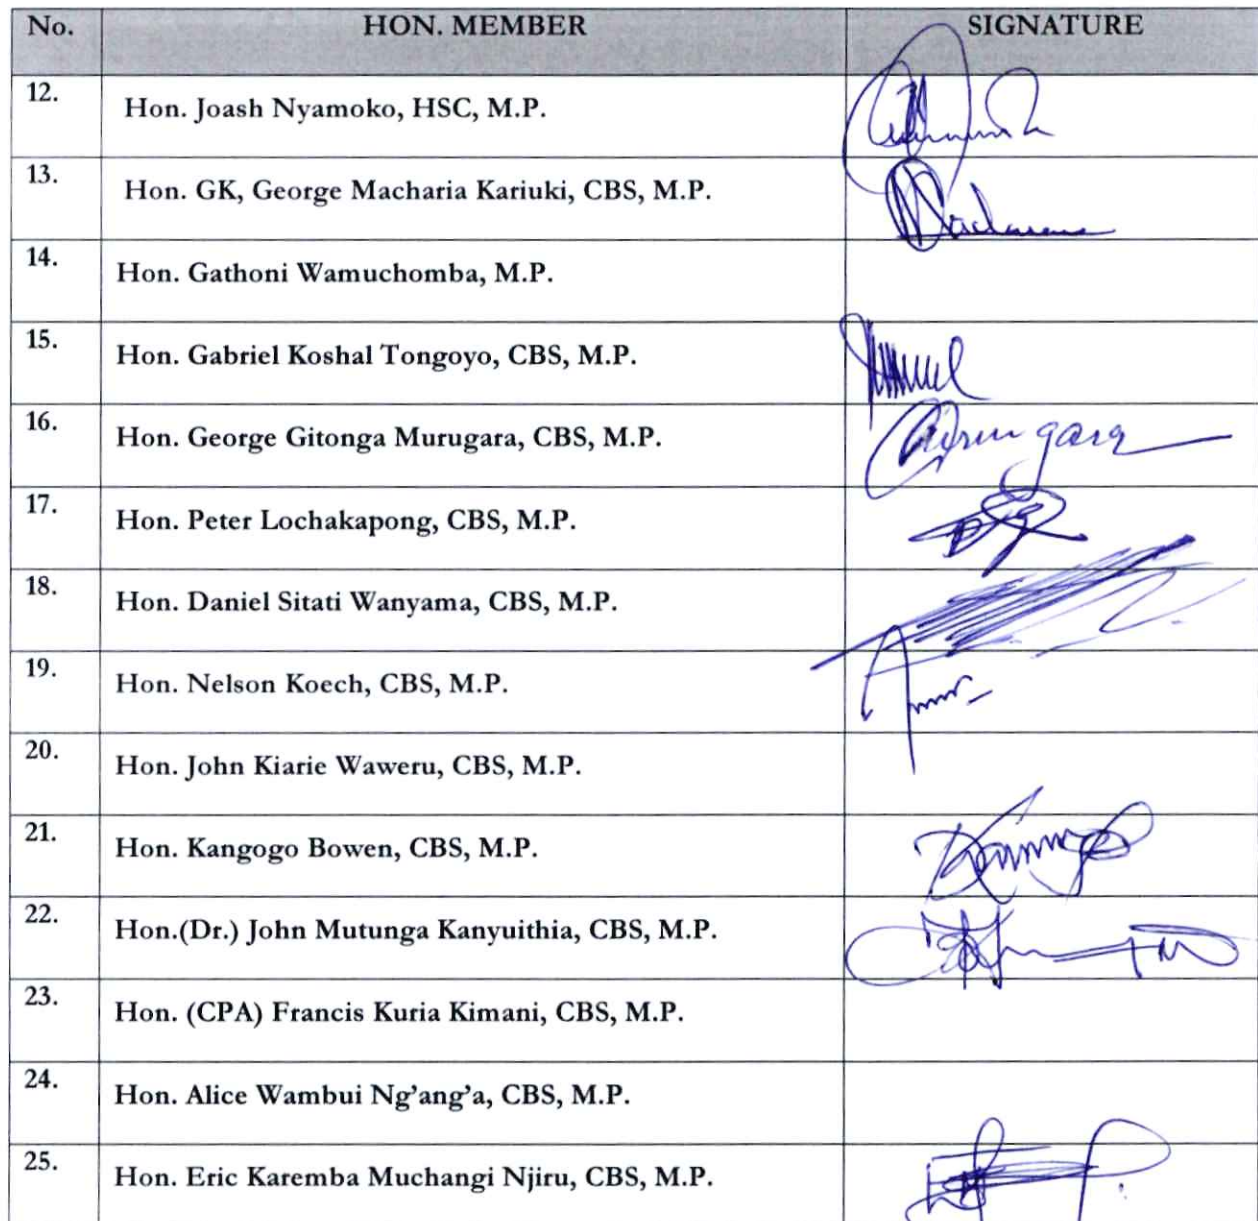 No. HON. MEMBER SIGNATURE
12. Hon. Joash Nyamoko, HSC, M.P.
13. Hon. GK, George Macharia Kariuki, CBS, M.P.
14. Hon. Gathoni Wamuchomba, M.P.
15. Hon. Gabriel Koshal Tongoyo, CBS, M.P.
16. Hon. George Gitonga Murugara, CBS, M.P.
17. Hon. Peter Lochakapong, CBS, M.P.
18. Hon. Daniel Sitati Wanyama, CBS, M.P.
19. Hon. Nelson Koech, CBS, M.P.
20. Hon. John Kiarie Waweru, CBS, M.P.
21. Hon. Kangogo Bowen, CBS, M.P.
22. Hon.(Dr.) John Mutunga Kanyuithia, CBS, M.P.
23. Hon. (CPA) Francis Kuria Kimani, CBS, M.P.
24. Hon. Alice Wambui Ng’ang’a, CBS, M.P.
25. Hon. Eric Karemba Muchangi Njiru, CBS, M.P.